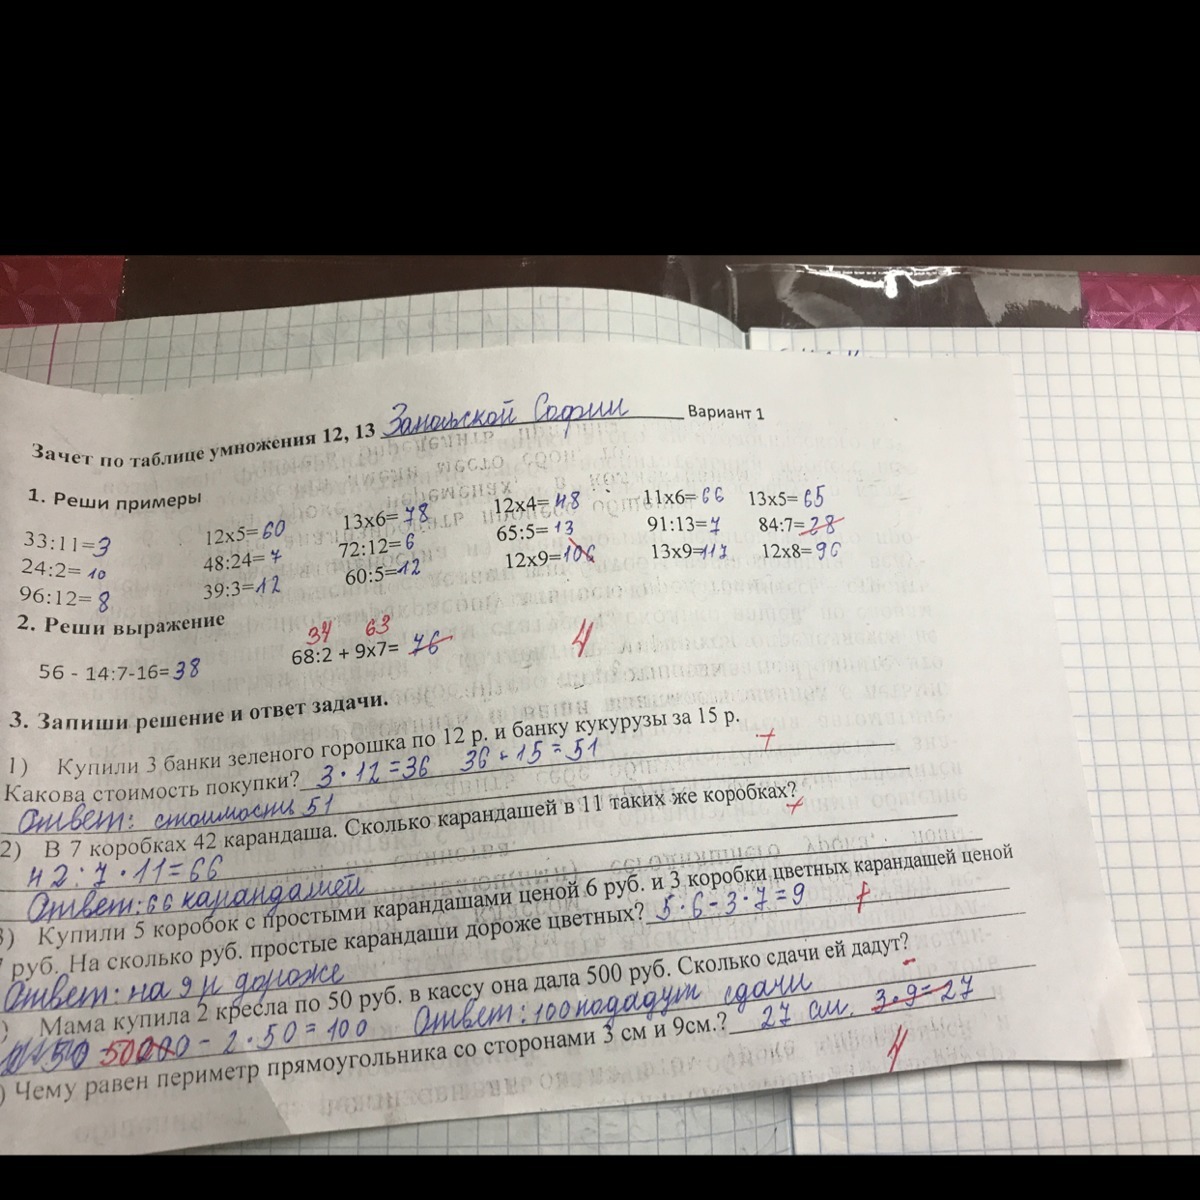 Зачет по таблице умножения 12, 13 Запольской Софии Вариант 1
1. Реши примеры
33:11=3 12x5=60 13x6=78 12x4=48 11x6=66 13x5=65
24:2=10 48:24=7 72:12=6 65:5=13 91:13=7 84:7=28
96:12=8 39:3=12 60:5=12 12x9=106 13x9=117 12x8=96
2. Реши выражение
34 63
56 - 14:7-16=38 68:2 + 9x7= 76 4
3. Запиши решение и ответ задачи.
1) Купили 3 банки зеленого горошка по 12 р. и банку кукурузы за 15 р.
Какова стоимость покупки? 3·12=36 36+15=51 +
Ответ: стоимость 51
2) В 7 коробках 42 карандаша. Сколько карандашей в 11 таких же коробках?
42:7·11=66 +
Ответ: 66 карандашей
3) Купили 5 коробок с простыми карандашами ценой 6 руб. и 3 коробки цветных карандашей ценой
7 руб. На сколько руб. простые карандаши дороже цветных? 5·6-3·7=9 +
Ответ: на 9 дороже
) Мама купила 2 кресла по 50 руб. в кассу она дала 500 руб. Сколько сдачи ей дадут?
- 2·50=100 Ответ: 100 дадут сдачи
) Чему равен периметр прямоугольника со сторонами 3 см и 9см.? 27 см. 3·9=27
4